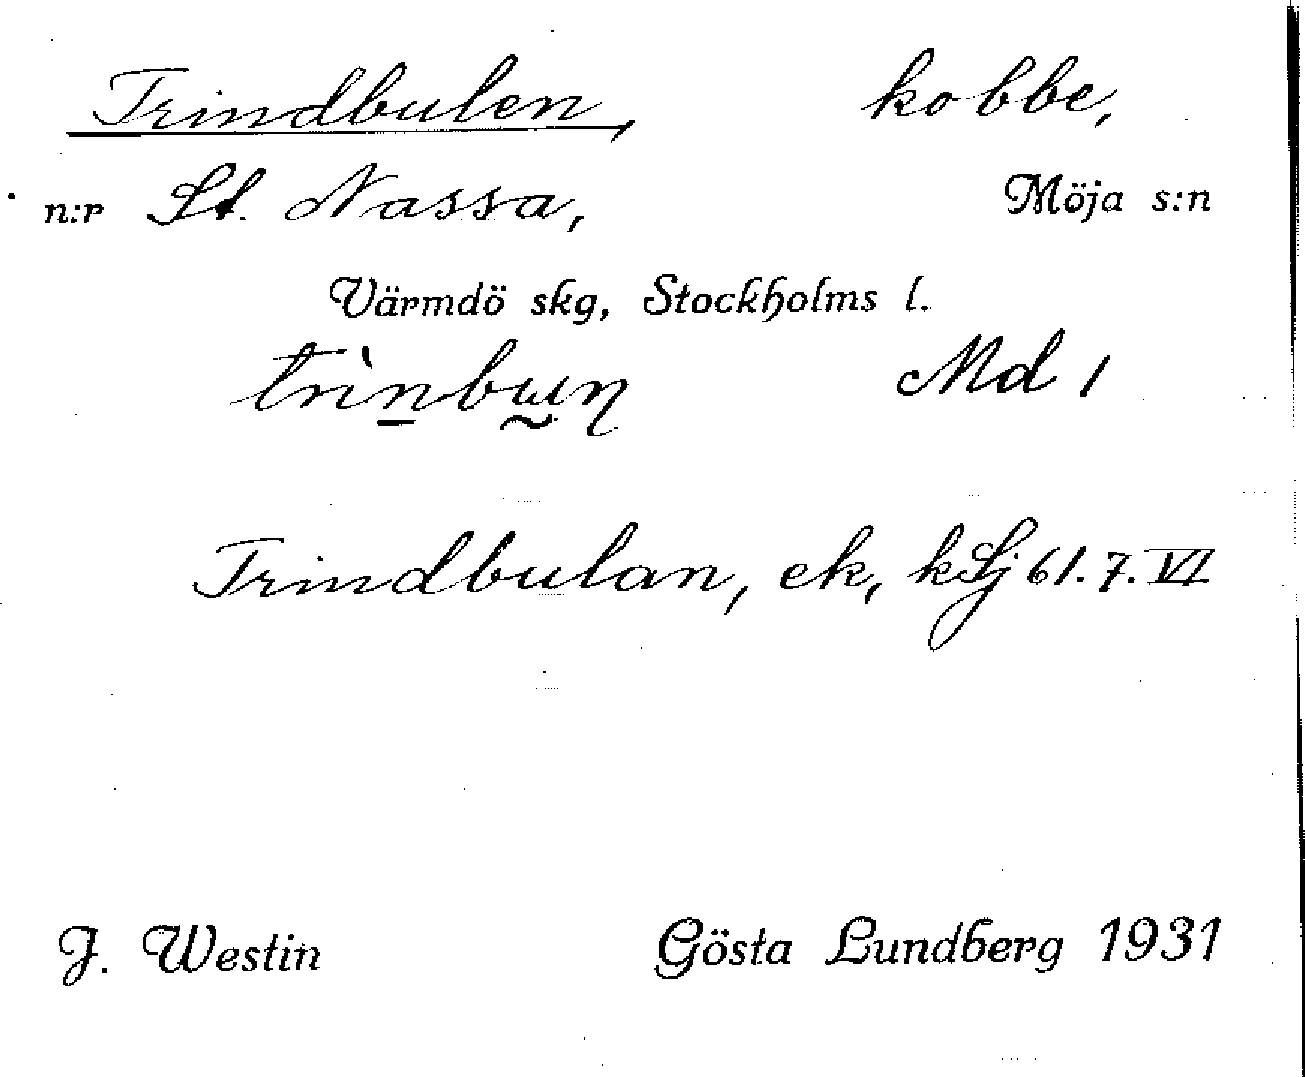 Trindbulen, kobbe,
n:r St. Nassa, Möja s:n
Värmdö skg, Stockholms l.
Md 1
Trindbulan, ek, kSj 61.7.VI
J. Westin Gösta Lundberg 1931